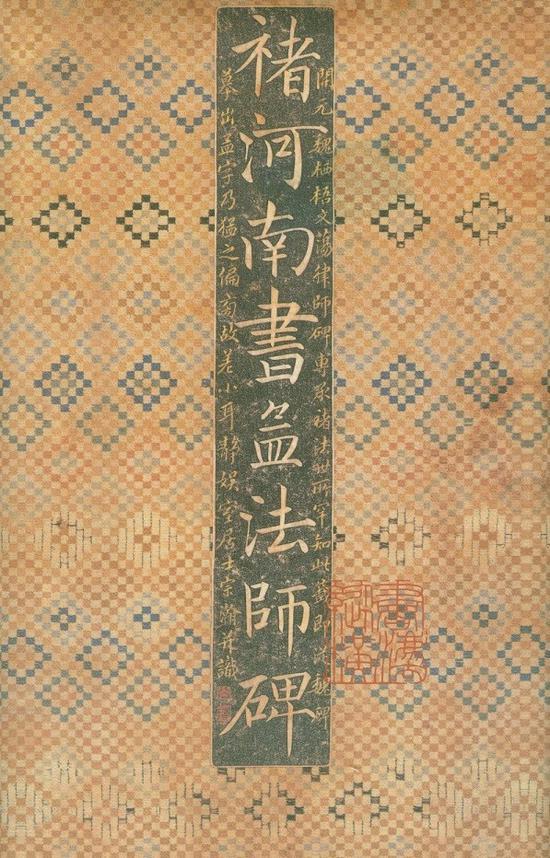 褚河南書孟法師碑
開元魏栖梧文蕩律師碑專褚法世所罕知此籤即魏碑
摹出孟字乃猛之偏旁故差小耳靜娛室居士宗瀚并識